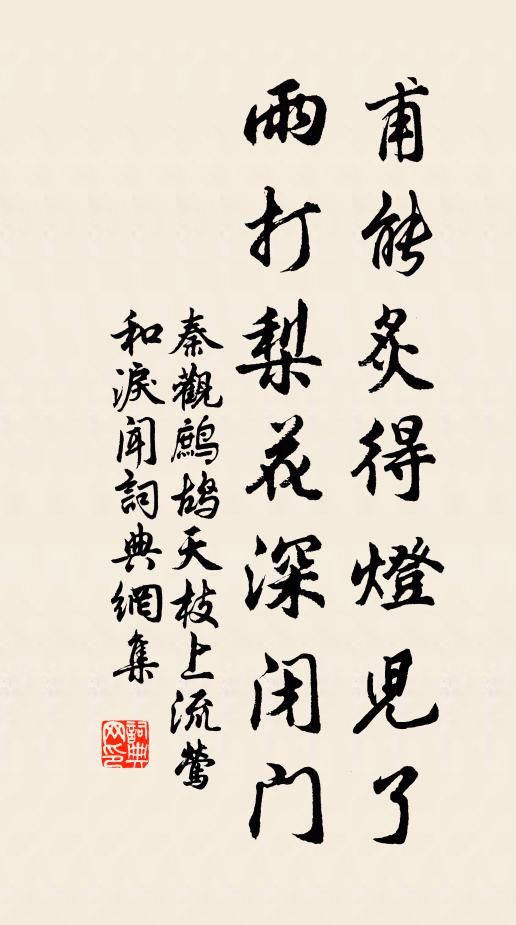 甫能炙得燈兒了
雨打梨花深閉門
秦觀鷓鴣天枝上流鶯
和淚聞詞典網集
詞典
网印